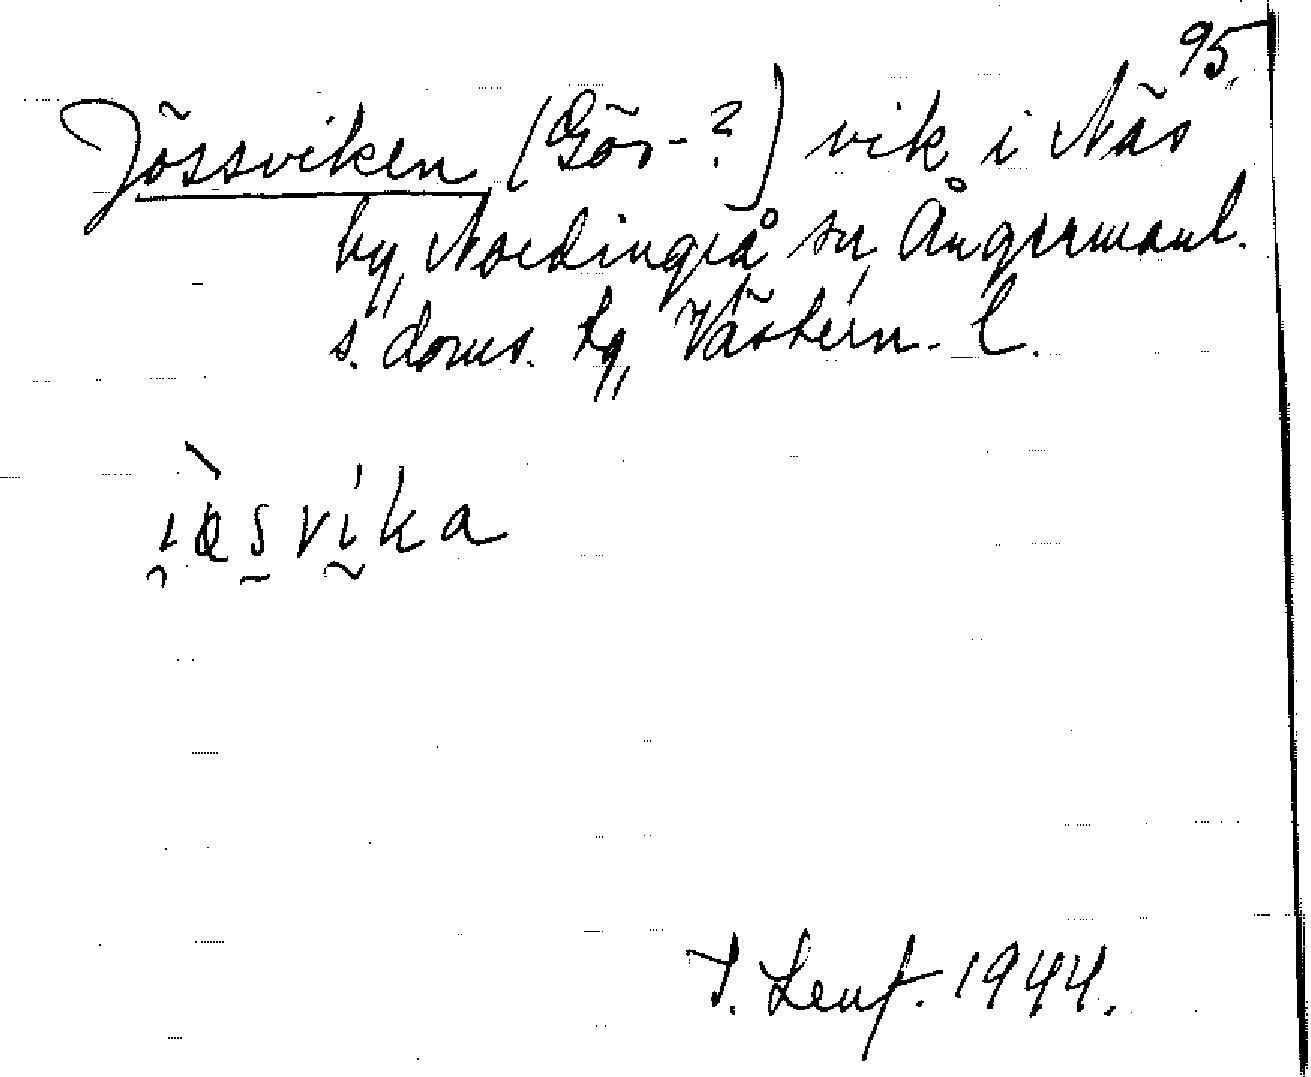 95.
Jössviken (Gös-?) vik i Näs
by, Nordingrå sn, Ångermanl.
s. doms. tg, Västern. l.
i̯ø̀s̰vḭka
T. Lenf. 1944.